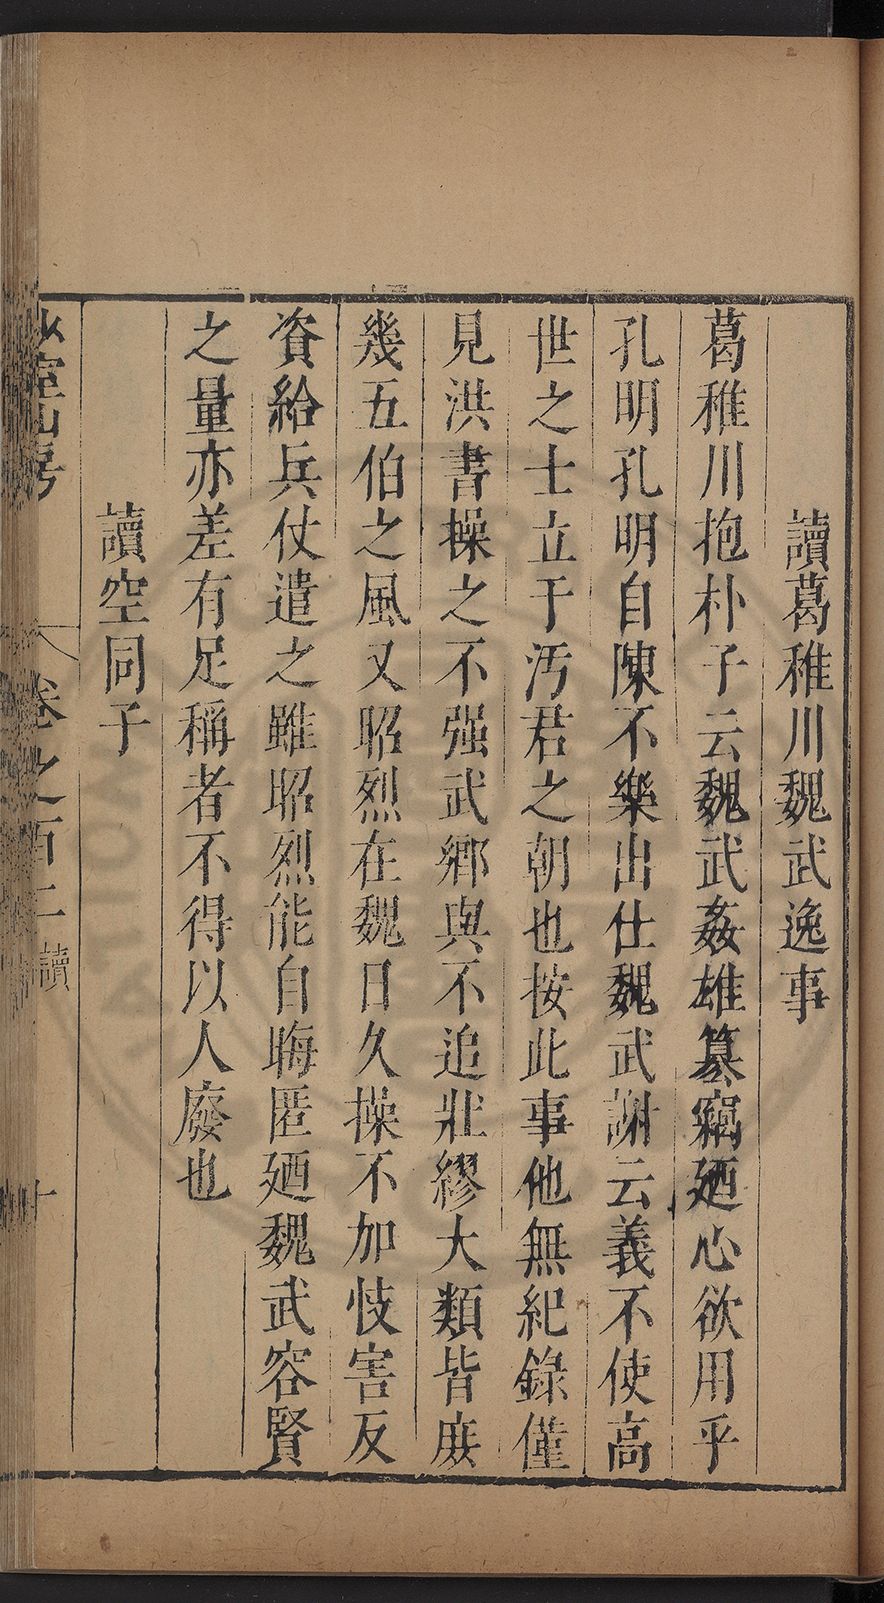 讀葛稚川魏武逸事
葛稚川抱朴子云魏武姦雄篡竊廼心欲用乎
孔明孔明自陳不樂出仕魏武謝云義不使高
世之士立于汚君之朝也按此事他無紀錄僅
見洪書操之不强武鄉與不追壯繆大類皆庻
幾五伯之風又昭烈在魏日久操不加忮害反
資給兵仗遣之雖昭烈能自晦匿廼魏武容賢
之量亦差有足稱者不得以人廢也
讀空同子
少室山房
卷之百二 讀
十